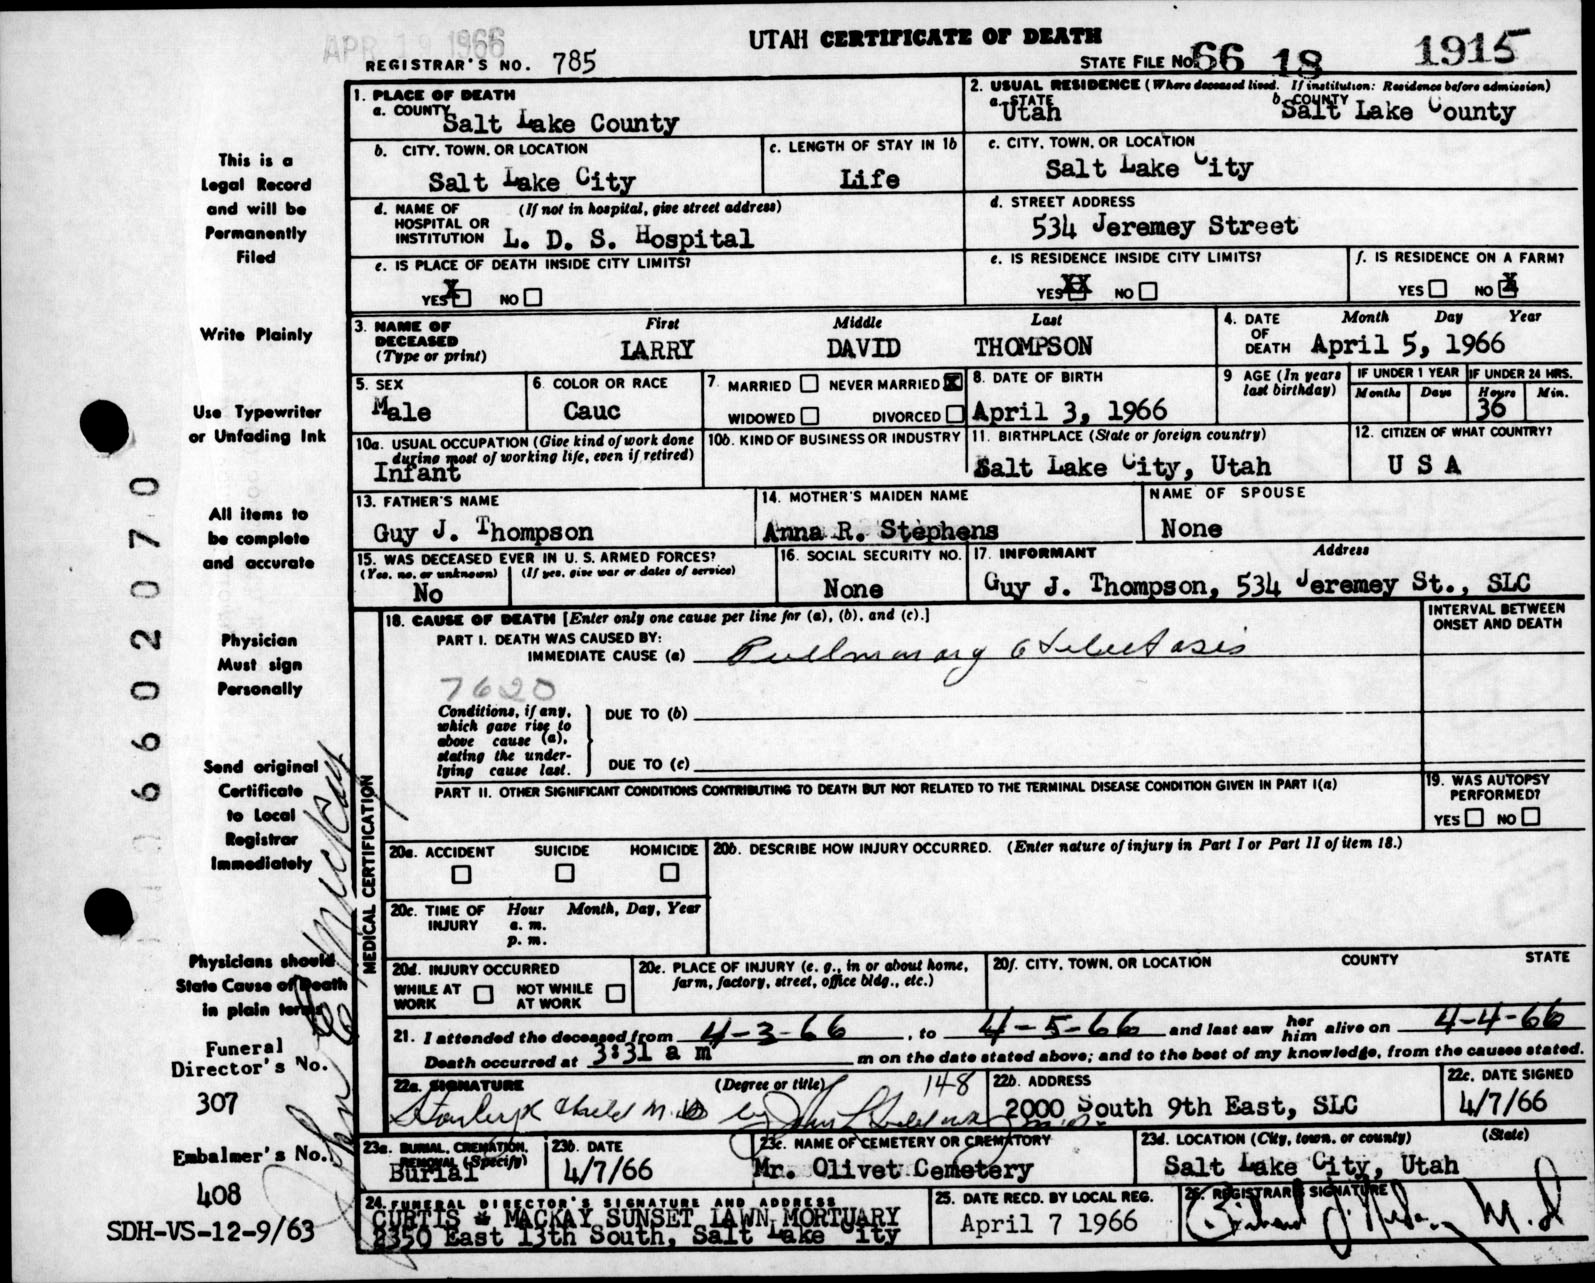 APR 19 1966
UTAH CERTIFICATE OF DEATH
REGISTRAR'S NO. 785
STATE FILE NO. 66 18 1915
1. PLACE OF DEATH
a. COUNTY Salt Lake County
2. USUAL RESIDENCE (Where deceased lived. If institution: Residence before admission)
a. STATE Utah b. COUNTY Salt Lake County
b. CITY, TOWN, OR LOCATION Salt Lake City
c. LENGTH OF STAY IN 1b Life
c. CITY, TOWN, OR LOCATION Salt Lake City
d. NAME OF HOSPITAL OR INSTITUTION (If not in hospital, give street address) L. D. S. Hospital
d. STREET ADDRESS 534 Jeremey Street
e. IS PLACE OF DEATH INSIDE CITY LIMITS?
YES X NO
e. IS RESIDENCE INSIDE CITY LIMITS?
YES XX NO
f. IS RESIDENCE ON A FARM?
YES NO X
3. NAME OF DECEASED (Type or print)
First Middle Last
LARRY DAVID THOMPSON
4. DATE OF DEATH Month Day Year
April 5, 1966
5. SEX Male
6. COLOR OR RACE Cauc
7. MARRIED NEVER MARRIED X
WIDOWED DIVORCED
8. DATE OF BIRTH April 3, 1966
9 AGE (In years last birthday)
IF UNDER 1 YEAR Months Days
IF UNDER 24 HRS. Hours 36 Min.
10a. USUAL OCCUPATION (Give kind of work done during most of working life, even if retired)
Infant
10b. KIND OF BUSINESS OR INDUSTRY
11. BIRTHPLACE (State or foreign country)
Salt Lake City, Utah
12. CITIZEN OF WHAT COUNTRY?
U S A
13. FATHER'S NAME
Guy J. Thompson
14. MOTHER'S MAIDEN NAME
Anna R. Stephens
NAME OF SPOUSE
None
15. WAS DECEASED EVER IN U. S. ARMED FORCES?
(Yes, no, or unknown) (If yes, give war or dates of service)
No
16. SOCIAL SECURITY NO.
None
17. INFORMANT Address
Guy J. Thompson, 534 Jeremey St., SLC
MEDICAL CERTIFICATION
18. CAUSE OF DEATH [Enter only one cause per line for (a), (b), and (c).]
INTERVAL BETWEEN ONSET AND DEATH
PART I. DEATH WAS CAUSED BY:
IMMEDIATE CAUSE (a) Pullmonary atelectasis
7620
Conditions, if any, which gave rise to above cause (a), stating the underlying cause last.
DUE TO (b)
DUE TO (c)
PART II. OTHER SIGNIFICANT CONDITIONS CONTRIBUTING TO DEATH BUT NOT RELATED TO THE TERMINAL DISEASE CONDITION GIVEN IN PART I(a)
19. WAS AUTOPSY PERFORMED?
YES NO
20a. ACCIDENT SUICIDE HOMICIDE
20b. DESCRIBE HOW INJURY OCCURRED. (Enter nature of injury in Part I or Part II of item 18.)
20c. TIME OF INJURY Hour Month, Day, Year
a. m.
p. m.
20d. INJURY OCCURRED
WHILE AT WORK NOT WHILE AT WORK
20e. PLACE OF INJURY (e. g., in or about home, farm, factory, street, office bldg., etc.)
20f. CITY, TOWN, OR LOCATION COUNTY STATE
21. I attended the deceased from 4-3-66, to 4-5-66 and last saw her him alive on 4-4-66
Death occurred at 3:31 a m m on the date stated above; and to the best of my knowledge, from the causes stated.
22a. SIGNATURE (Degree or title) 148
22b. ADDRESS
2000 South 9th East, SLC
22c. DATE SIGNED
4/7/66
23a. BURIAL, CREMATION, REMOVAL (Specify)
Burial
23b. DATE
4/7/66
23c. NAME OF CEMETERY OR CREMATORY
Mr. Olivet Cemetery
23d. LOCATION (City, town, or county) (State)
Salt Lake City, Utah
24. FUNERAL DIRECTOR'S SIGNATURE AND ADDRESS
CURTIS & MACKAY SUNSET LAWN MORTUARY
2350 East 13th South, Salt Lake City
25. DATE RECD. BY LOCAL REG.
April 7 1966
26. REGISTRAR'S SIGNATURE
This is a
Legal Record
and will be
Permanently
Filed
Write Plainly
Use Typewriter
or Unfading Ink
All items to
be complete
and accurate
Physician
Must sign
Personally
Send original
Certificate
to Local
Registrar
Immediately
Physicians should
State Cause of Death
in plain terms
Funeral
Director's No.
307
Embalmer's No.
408
SDH-VS-12-9/63
06602070